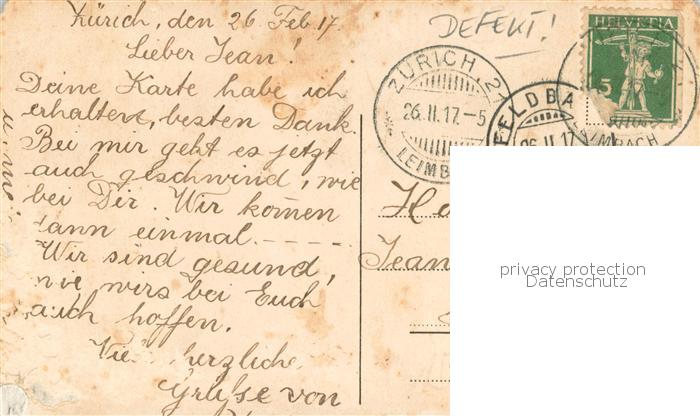 Zürich, den 26. Feb. 17.
Lieber Jean!
Deine Karte habe ich
erhalten, besten Dank.
Bei mir geht es jetzt
auch geschwind, wie
bei Dir. Wir kom̄en
dann einmal.-----
Wir sind gesund,
wie wirs bei Euch
auch hoffen.
herzliche
Grüsse von
DEFEKT!
ZÜRICH, 2
26. II. 17.-5
LEIMB
HELVETIA
5
FELDBA
26. II. 17
LEIMBACH
Jean
privacy protection
Datenschutz